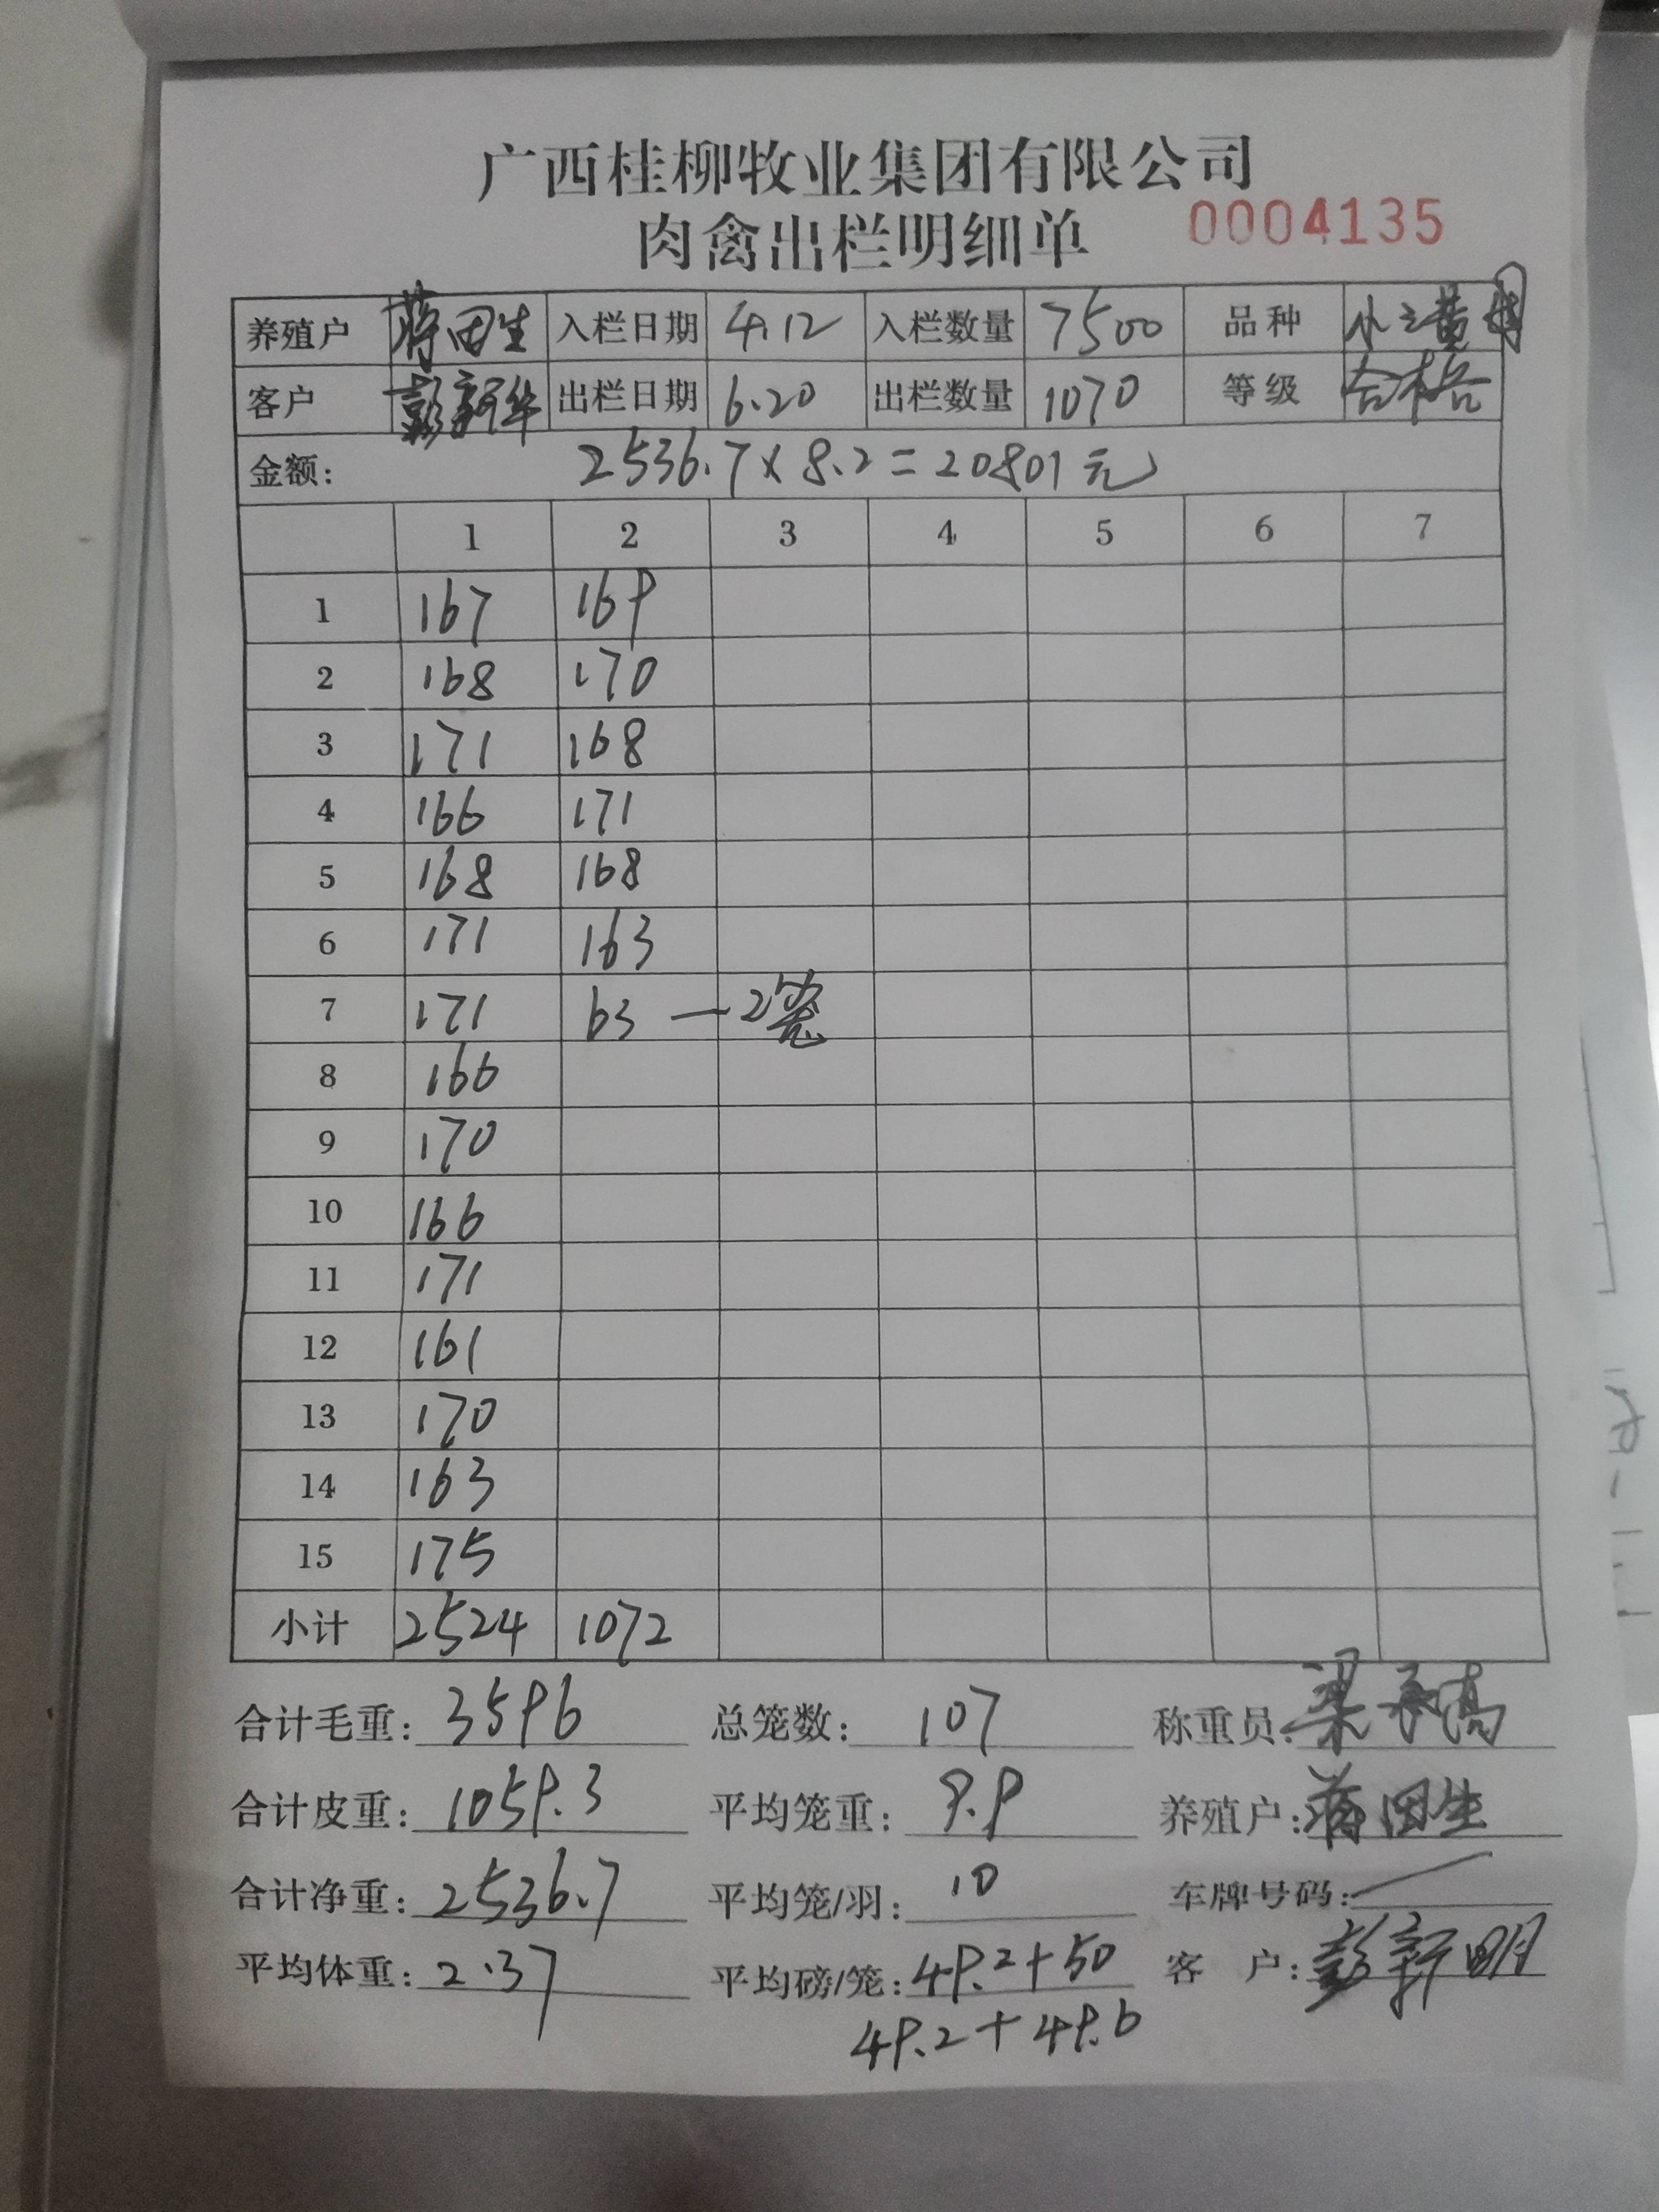 广西桂柳牧业集团有限公司
肉禽出栏明细单 0004135
养殖户 蒋田生 入栏日期 4.12 入栏数量 7500 品种 小三黄
客户 彭新华 出栏日期 6.20 出栏数量 1070 等级 合格
金额: 2536.7×8.2=20801元
1 2 3 4 5 6 7
1 167 169
2 168 170
3 171 168
4 166 171
5 168 168
6 171 163
7 171 63 — 2笼
8 166
9 170
10 166
11 171
12 161
13 170
14 163
15 175
小计 2524 1072
合计毛重: 3596 总笼数: 107 称重员: 梁
合计皮重: 1059.3 平均笼重: 9.9 养殖户: 蒋田生
合计净重: 2536.7 平均笼/羽: 10 车牌号码:
平均体重: 2.37 平均磅/笼: 49.2+50 客 户: 彭新明
49.2+49.6